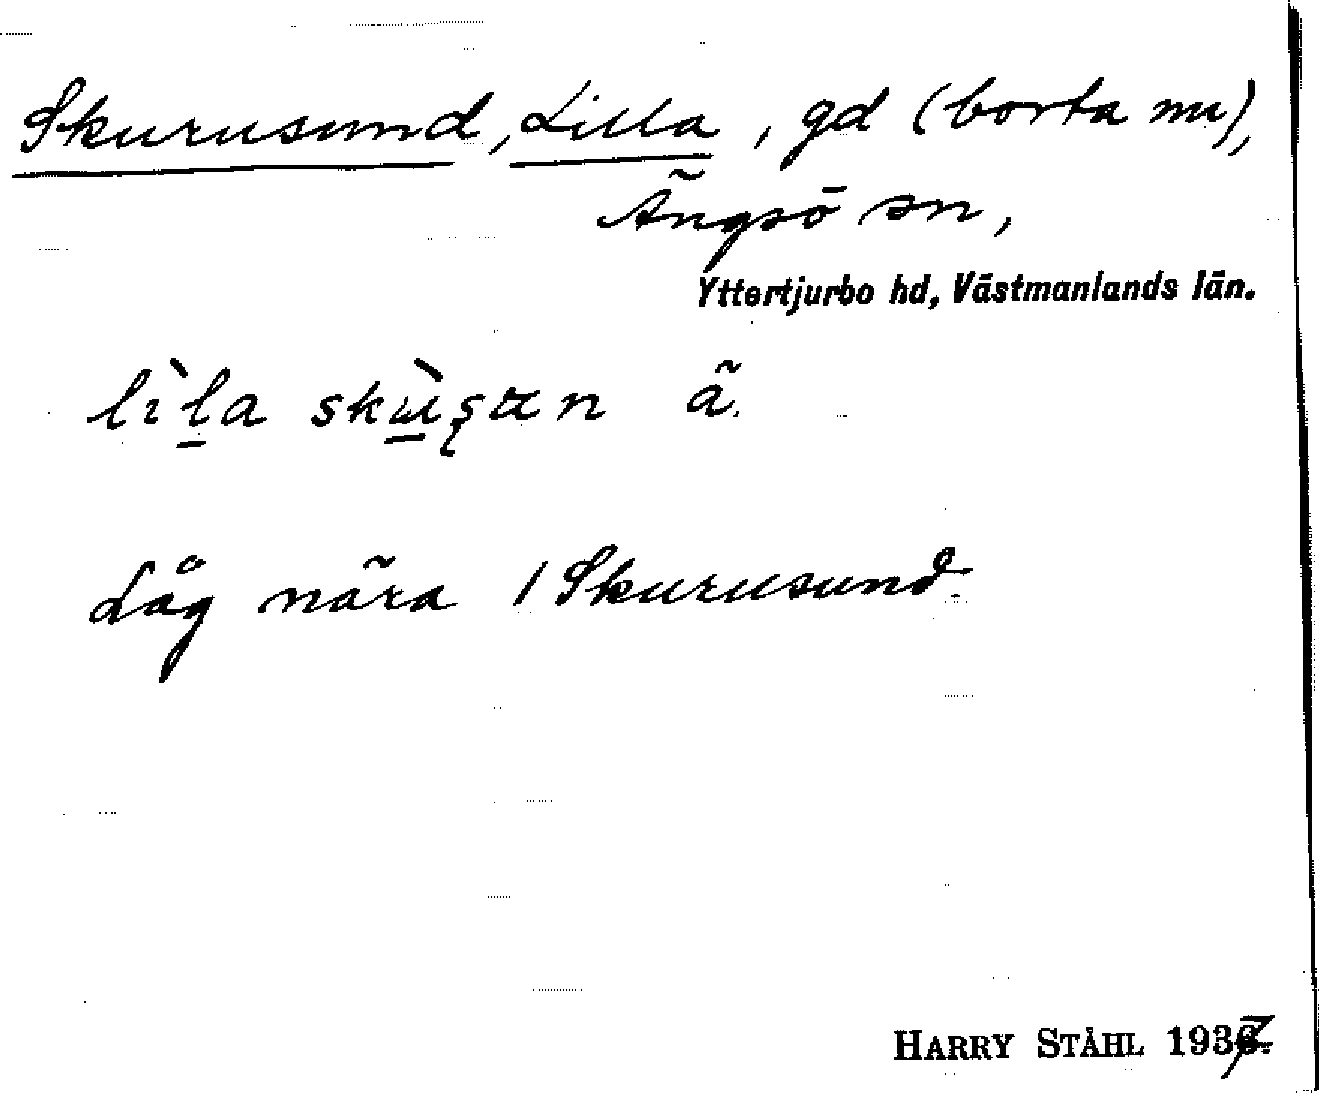 Skurusund, Lilla, gd (borta nu),
Ängsö sn,
Yttertjurbo hd, Västmanlands län.
ä
Låg nära / Skurusund.
HARRY STÅHL 1937